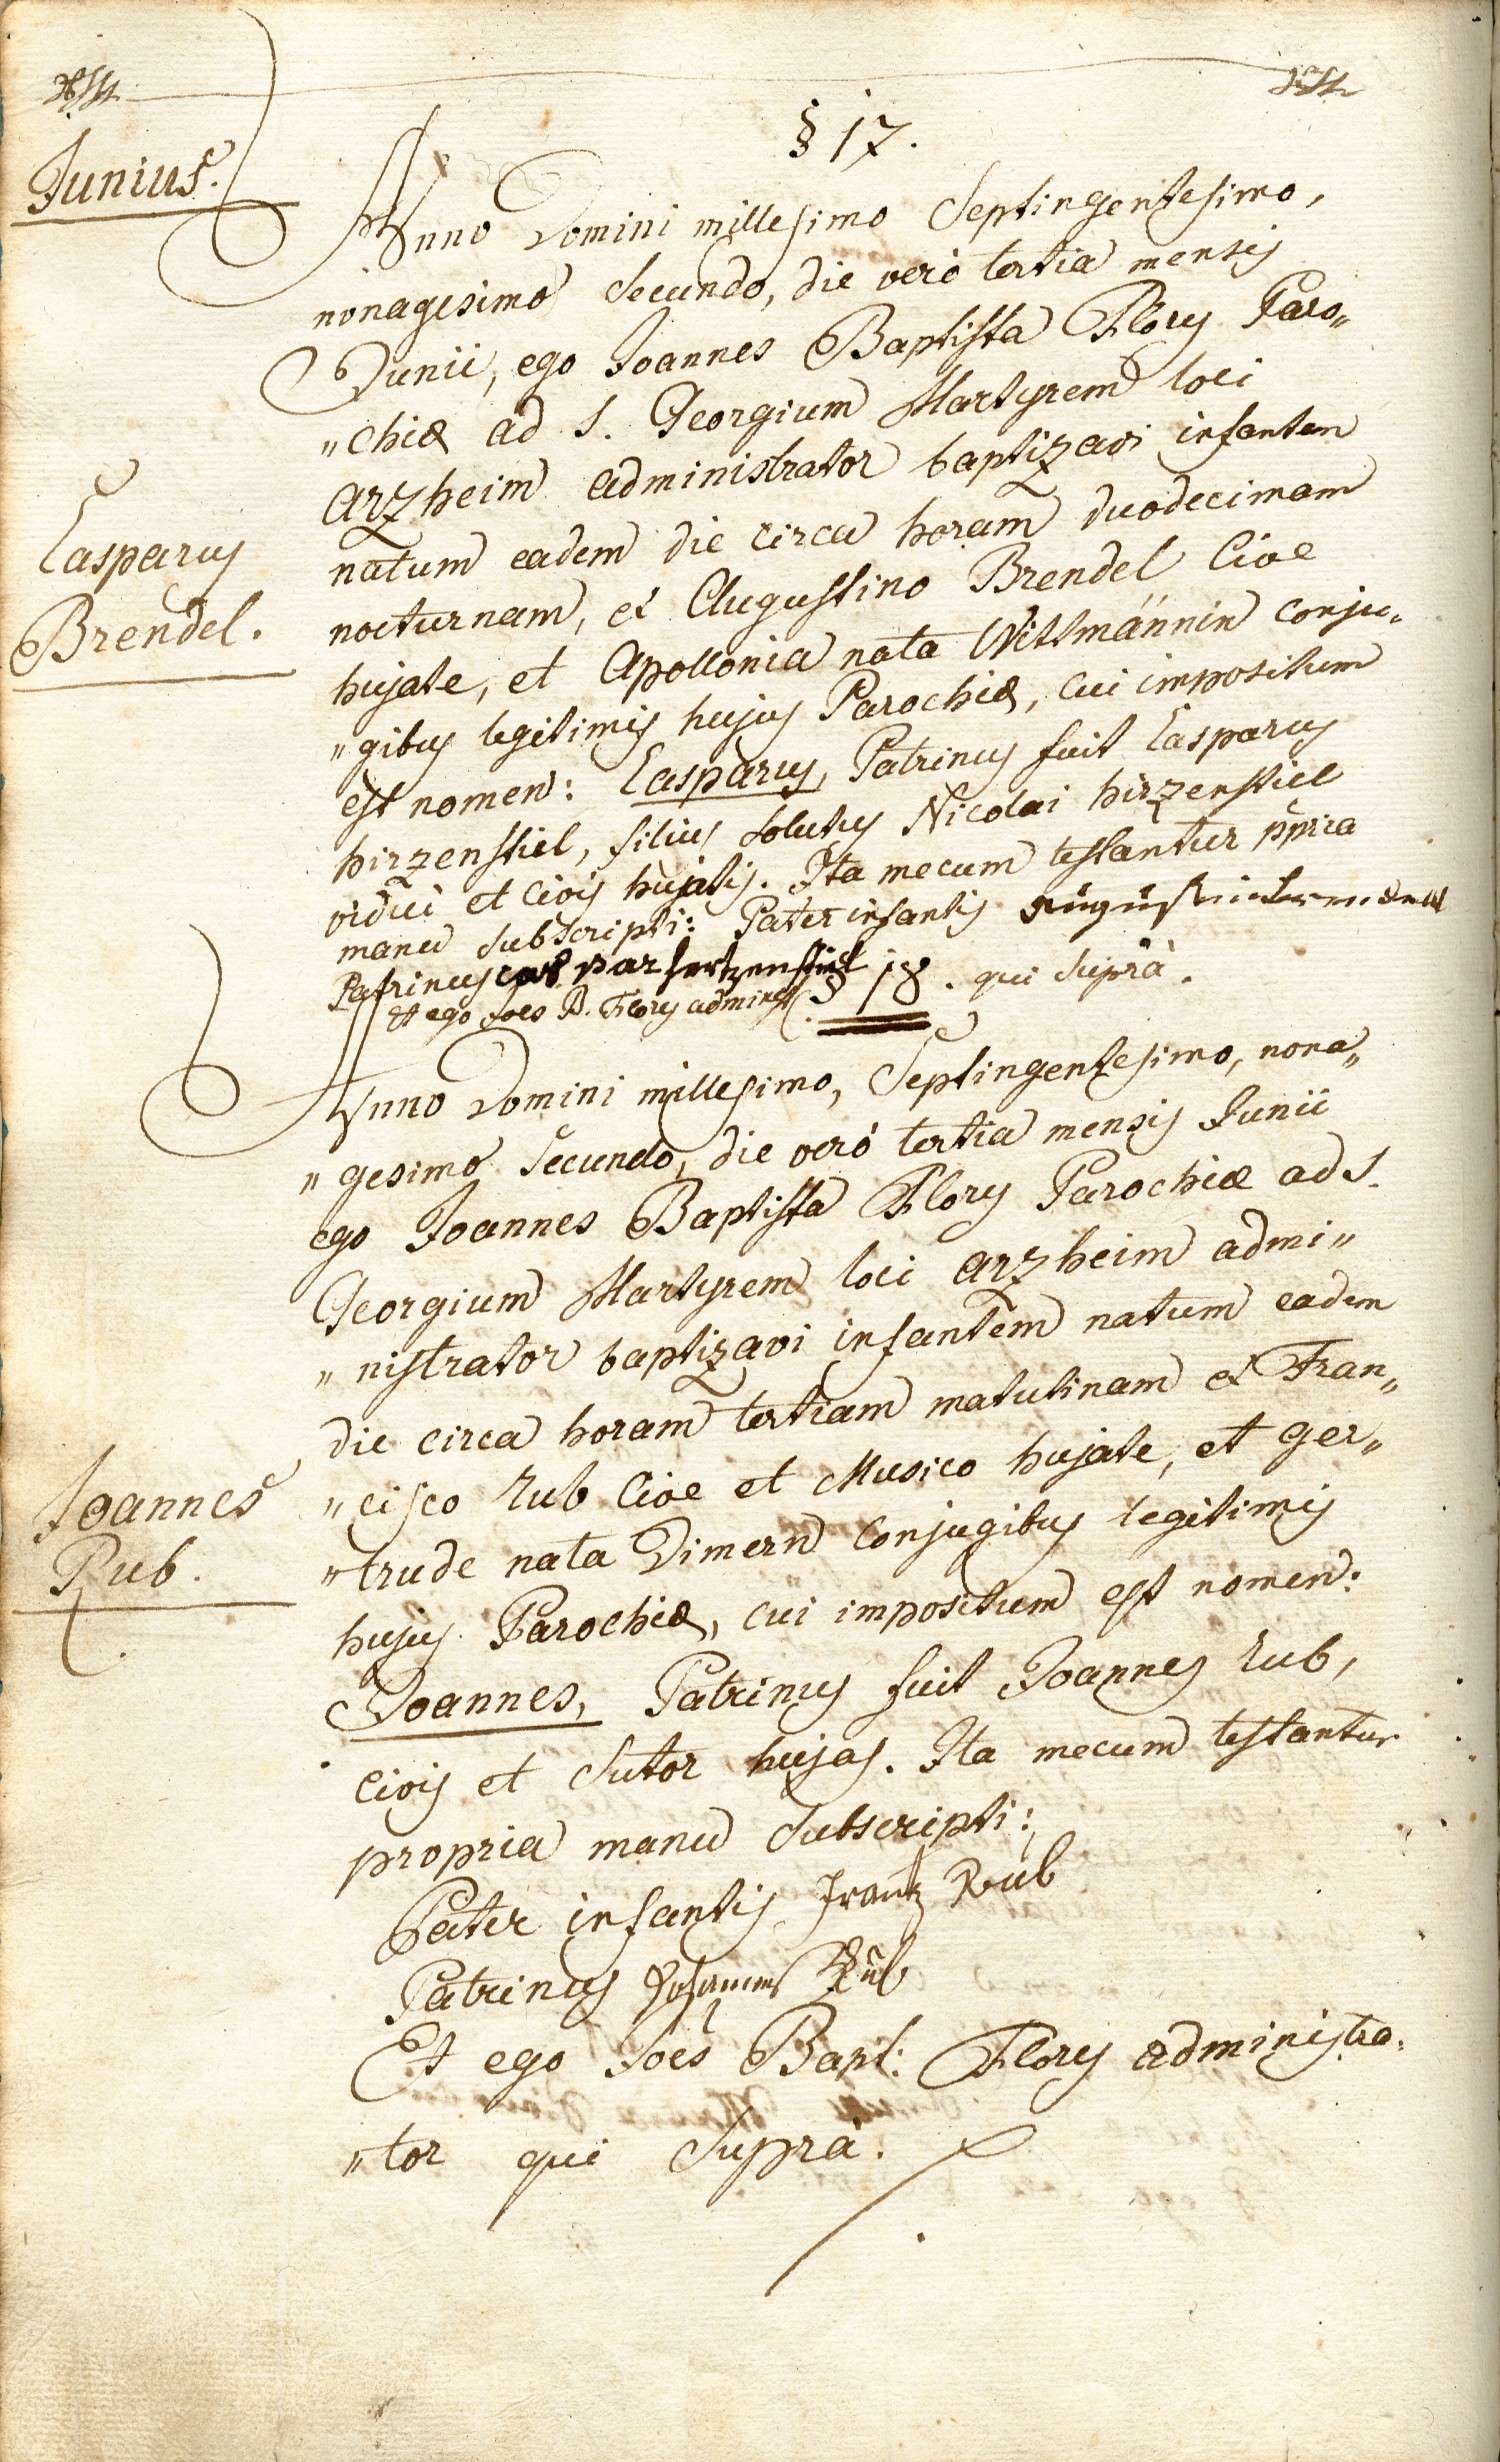 Junius.
§ 17.
Anno Domini millesimo Septingentesimo,
nonagesimo Secundo, die verò tertia mensis
Junii, ego Joannes Baptista Flory Paro„
„chiæ ad S. Georgium Martyrem loci
Arzheim administrator baptizavi infantem
natum eadem die circa horam duodecimam
nocturnam, ex Augustino Brendel Cive
hujate, et Apollonia nata Wittmännin conju„
„gibus legitimis hujus Parochiæ, cui impositum
est nomen: Casparus, Patrinus fuit Casparus
hirzenstiel, filius solutus Nicolai hirzenstiel
et Civis hujatis. Ita mecum testantur ppria
manu subscripti: Pater infantis
Patrinus caspar hertzenstiel
Et ego Joes B. Flory administ. qui Suprà.
Casparus
Brendel.
§ 18.
Anno Domini millesimo, Septingentesimo, nona„
„gesimo Secundo, die verò tertia mensis Junii
ego Joannes Baptista Flory Parochiæ ad S.
Georgium Martyrem loci Arzheim admi„
„nistrator baptizavi infantem natum eadem
die circa horam tertiam matutinam ex Fran„
„cisco Rub Cive et Musico hujate, et Ger„
„trude nata Dimern Conjugibus legitimis
hujus Parochiæ, cui impositum est nomen:
Joannes, Patrinus fuit Joannes Rub,
Civis et Sutor hujas. Ita mecum testantur
propria manu Subscripti:
Pater infantis Frantz Rub
Patrinus Johannes Rub
Et ego Joes Bapt: Flory administra„
„tor qui Suprà.
Joannes
Rub.